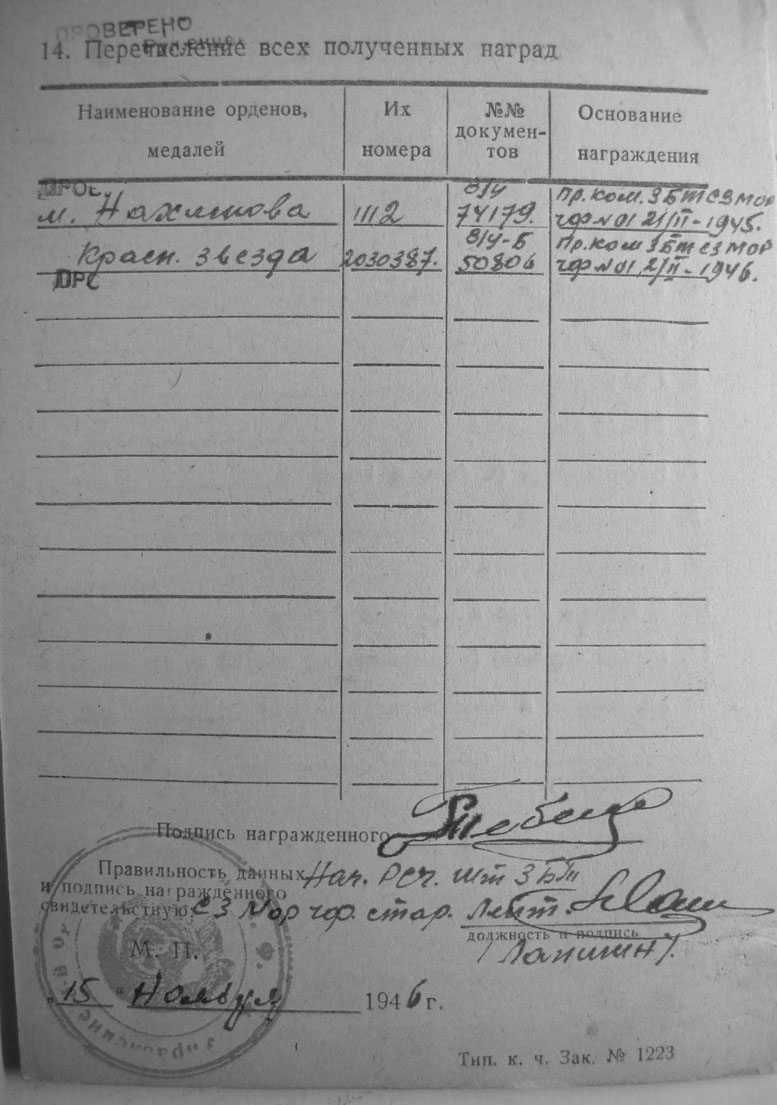 ПРОВЕРЕНО
14. Перечисление всех полученных наград
Наименование орденов, медалей
Их номера
№№ документов
Основание награждения
м. Нахимова
1112
в/ч 74179.
Пр. Ком. 3 БТ СЗ МОР
ЧФ N 01 21/II-1945.
Красн. звезда
2030387.
в/ч-Б 50806
Пр. Ком 3 БТ СЗ МОР
ЧФ N 01 2/II-1946.
ПРС
Подпись награжденного
Правильность данных Нач. Рсч. шт 3 БТ
и подпись награжденного
свидетельствую: СЗ Мор чф. стар. Лейт.
должность и подпись
/Лапшин/.
М. П.
„15“ Ноября 1946 г.
Тип. к. ч. Зак. № 1223